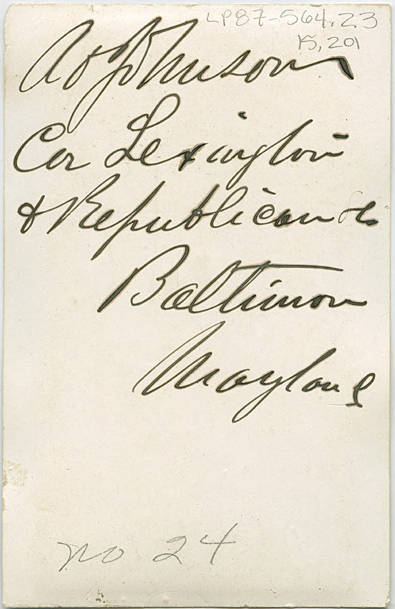 LP87-564.23
15,201
Ao Johnson
Cor Lexington
& Republican sts
Baltimore
Maryland
no 24